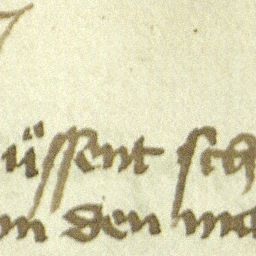 üssent sch
on den ma